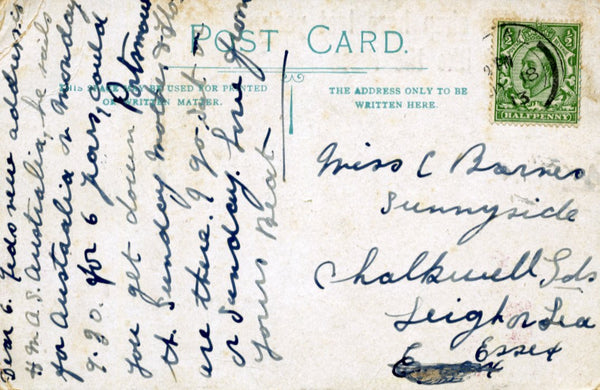 POST CARD.
THIS SPACE MAY BE USED FOR PRINTED
OR WRITTEN MATTER.
THE ADDRESS ONLY TO BE
WRITTEN HERE.
1/2 1/2
HALFPENNY
Dear C. Feds new address is
H M A S. Australia, he sails
for Australia on Monday
9.30. for 6 years, could
you get down Portsmouth
St. Sunday Mother & Flo
are there. I go Sat or
or Sunday. Love from
Yours Beat
Miss C Barnes
Sunnyside
Chalkwell Gds
Leigh on Sea
Essex